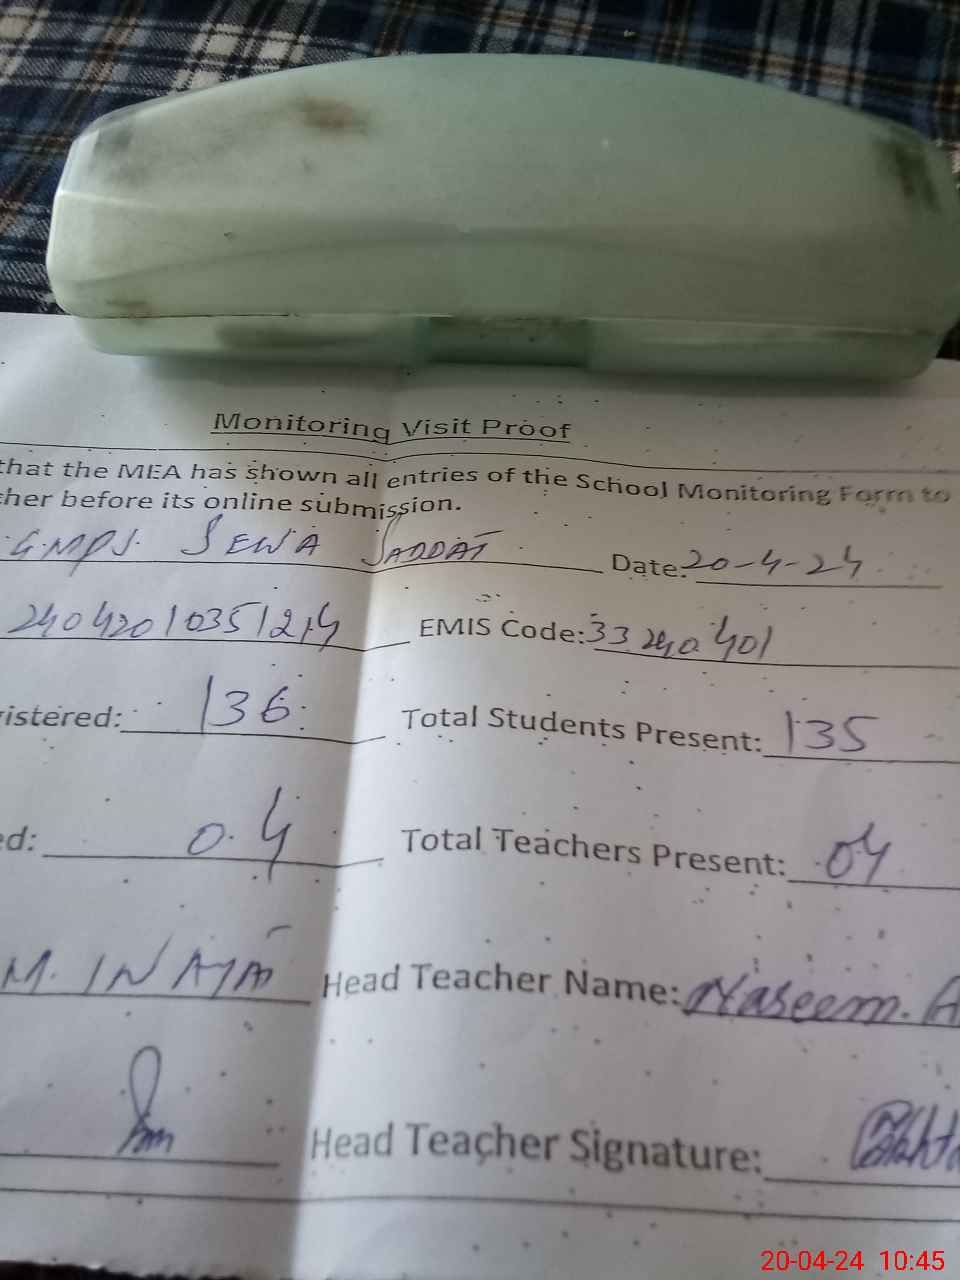 Monitoring Visit Proof
that the MEA has shown all entries of the School Monitoring Form to
ther before its online submission.
G.M.P.S. SEWA SADDAT Date: 20-4-24
24042010351214 EMIS Code: 33240401
istered: 136 Total Students Present: 135
ed: 04 Total Teachers Present: 04
M. INAYAT Head Teacher Name: Naseem. A
Head Teacher Signature:
20-04-24 10:45